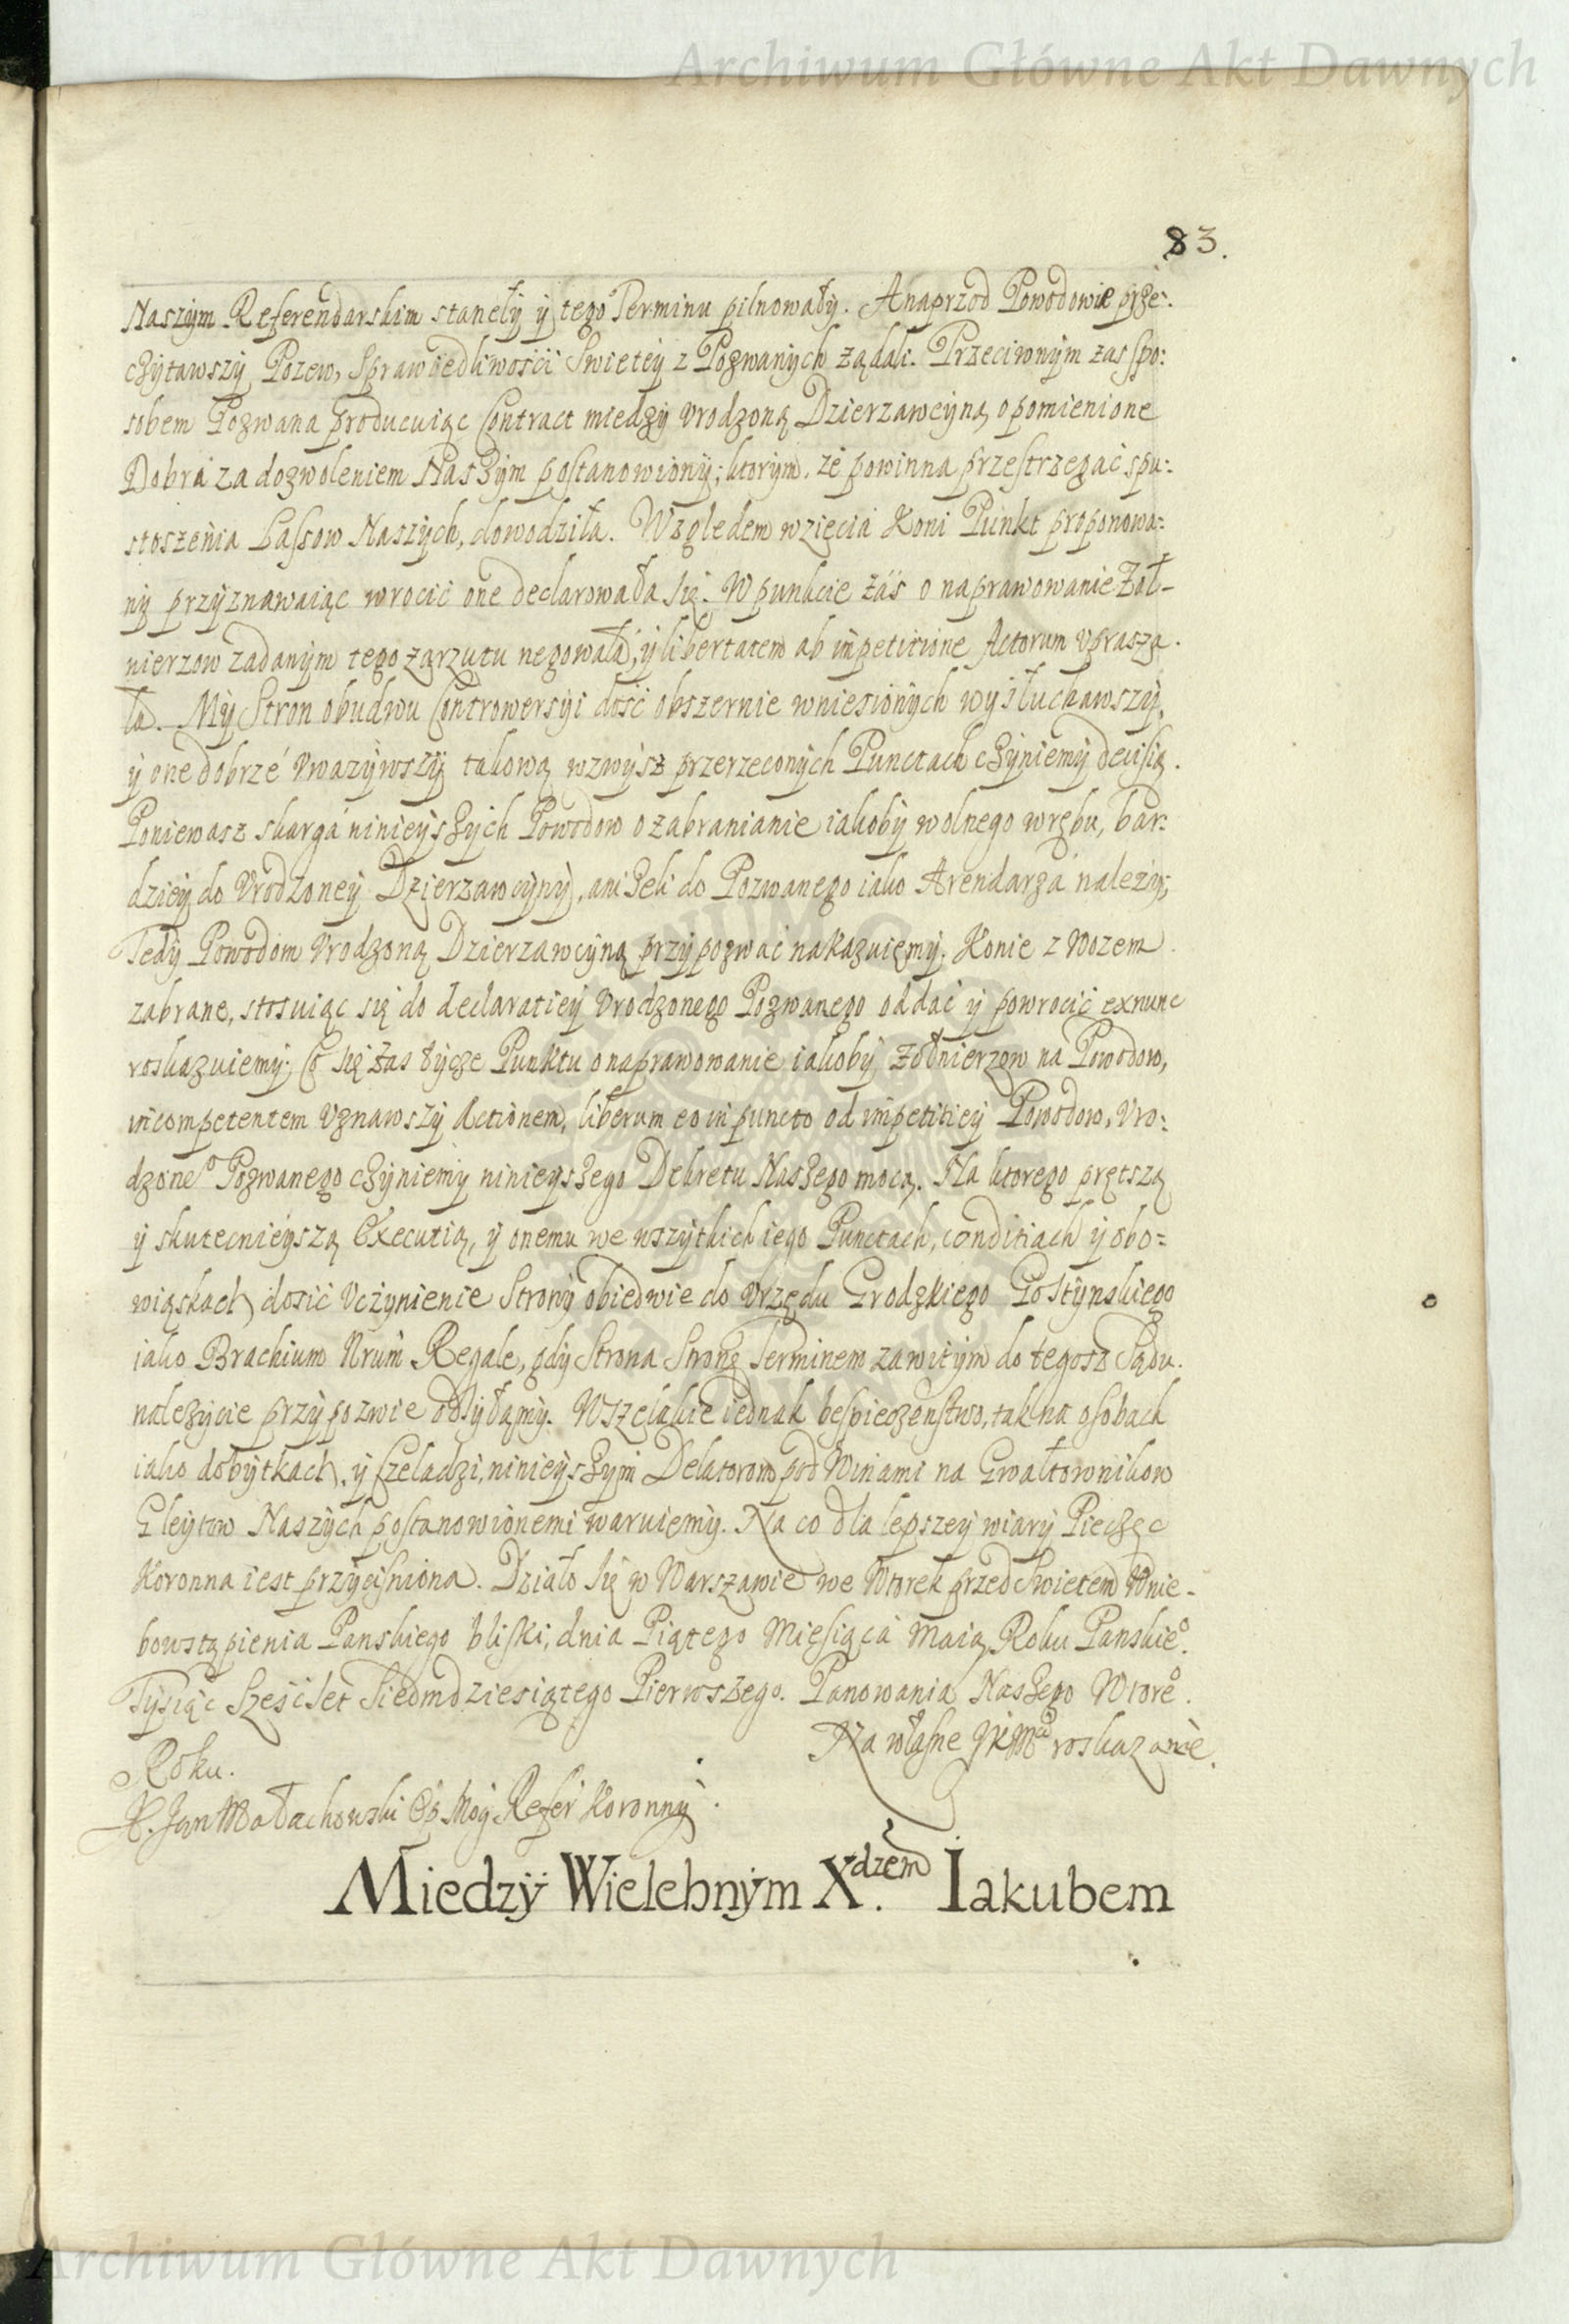 Archiwum Główne Akt Dawnych
83.
Naszym Referendarskim stanęły y tego Terminu pilnowały. A naprzod Powodowie prze:
czytawszy Pozew, Sprawiedliwości Swietey z Pozwanych ządali. Przeciwnym zas spo:
sobem Pozwana producuiąc Contract miedzy Vrodzoną Dzierzawcyną o pomienione
Dobra za dozwoleniem Naszym postanowiony; ktorym, ze powinna przestrzegać spu:
stoszenia Lassow Naszych, dowodziła. Względem wzięcia Koni Punkt proponowa:
ny przyznawaiąc wrocić one declarowała się. W punkcie zaś o naprawowanie Żoł-
nierzow zadanym tego zarzutu negowała, y libertatem ab impetitione Actorum vprasza.
ła. My Stron obudwu Controwersyi dość obszernie wniesionych wysłuchawszy,
y one dobrze vwazywszy takową wzwysz przerzeconych Punctach czyniemy decisią.
Poniewasz skarga ninieyszych Powodow o zabranianie iakoby wolnego wrębu, bar:
dziey do Vrodzoney Dzierzawcyny, aniżeli do Pozwanego iako Arendarza należy;
Tedy Powodom Vrodzoną Dzierzawcyną przypozwać nakazuięmy. Konie z Wozem
zabrane, stosuiąc się do declaratiey Vrodzonego Pozwanego oddać y powrocić exnunc
roskazuiemy; Co się zas tycze Punktu o naprawowanie iakoby żołnierzow na Powodow,
incompetentem vznawszy Actionem, liberum eo in puncto od impetitiey Powodow, Vro:
dzoneº Pozwanego czyniemy ninieyszego Dekretu Naszego mocą. Na ktorego prętszą
y skutecznieyszą Executią, y onemu we wszytkich iego Punctach, conditiach y obo=
wiąskach dosić vczynienie Strony obiedwie do Vrzędu Grodzkiego Gostynskiego
iako Brachium Nrum Regale, gdy Strona Stronę Terminem zawitym do tegosz Sądu.
nalezycie przypozwie odsyłamy. Wszelakie iednak bespieczenstwo, tak na osobach
iako dobytkach, y Czeladzi, ninieyszym Delatorom pod Winami na Gwałtownikow
Gleytow Naszych postanowionemi waruiemy. Na co dla lepszey wiary Pieczęć
Koronna iest przyciśniona. Działo się w Warszawie we Wtorek przed Swietem Wnie-
bowstąpienia Panskiego bliski, dnia Piątego Miesiąca Maia, Roku Panskieº.
Tysiąc Sześćset Siedmdziesiątego Pierwszego. Panowania Naszego Wtoreº.
Roku.
Na własne JKMci roskazanie.
X. Jan Małachowski Op. Mog. Refer Koronny.
Miedzy Wielebnym Xdzem. Iakubem
Archiwum Główne Akt Dawnych